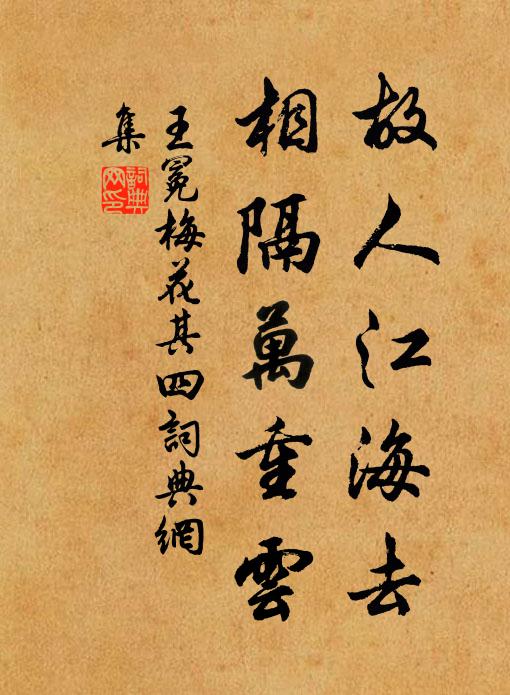 故人江海去
相隔萬重雲
王冕梅花其四詞典網
集
詞典網印